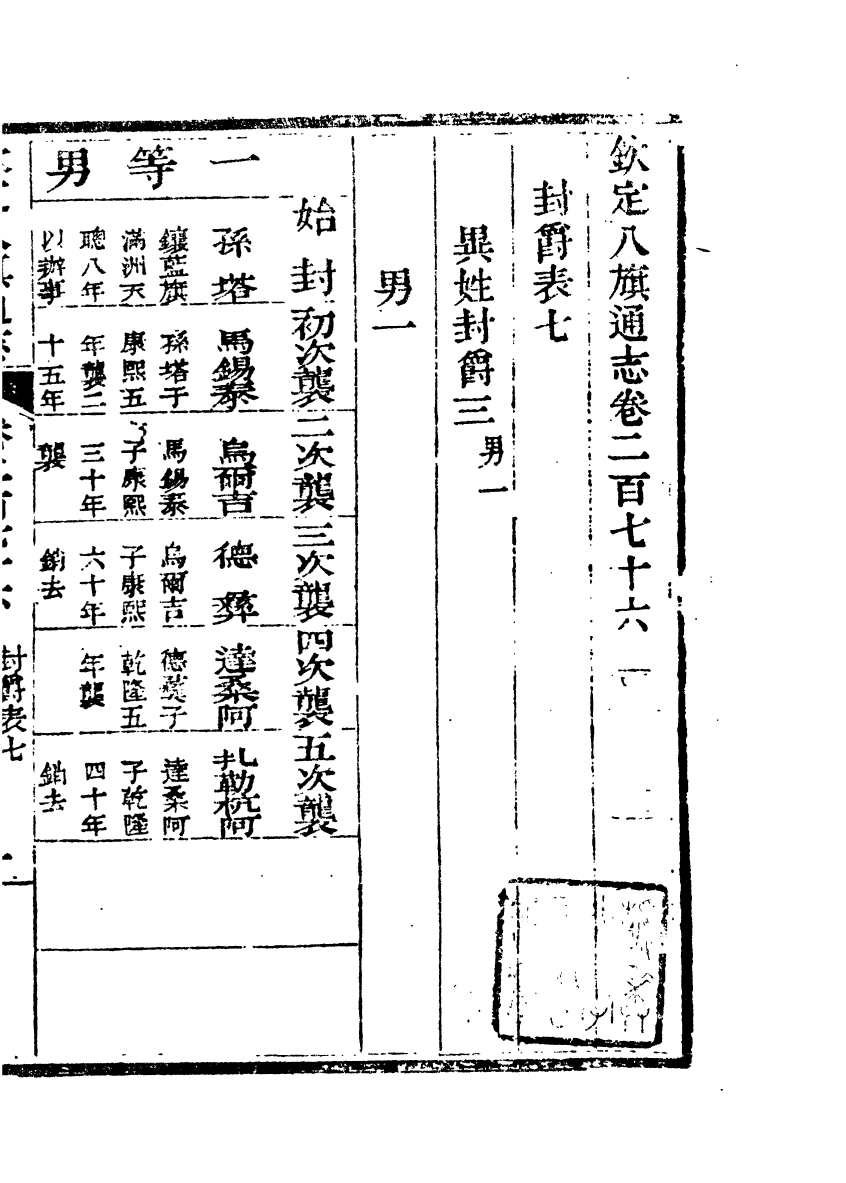 欽定八旗通志卷二百七十六
封爵表七
異姓封爵三 男一
男一
始封
初次襲
二次襲
三次襲
四次襲
五次襲
一等男
孫塔
鑲藍旗
滿洲天
聰八年
以辦事
馬錫泰
孫塔子
康熙五
年襲二
十五年
烏爾吉
馬錫泰
子康熙
三十年
襲
德彝
烏爾吉
子康熙
六十年
銷去
達桑阿
德彝子
乾隆五
年襲
扎勒杭阿
達桑阿
子乾隆
四十年
銷去
封爵表七